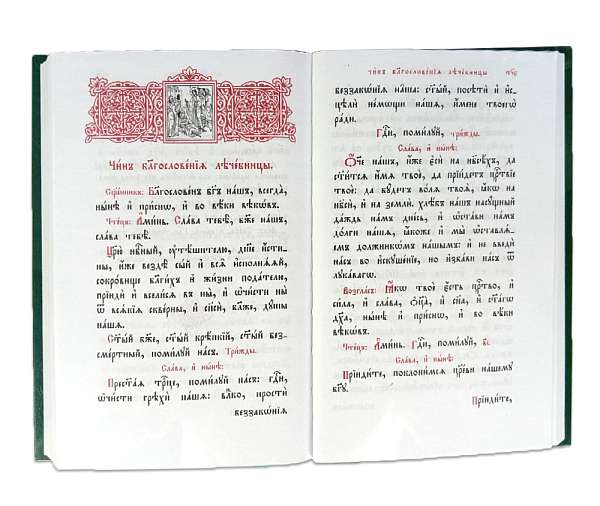 Чи́нъ блгⷭ҇ове́нїѧ лѣче́бницы.
Сщ҃е́нникъ: Блгⷭ҇ове́нъ бг҃ъ на́шъ, всегда̀,
ны́нѣ и҆ при́снѡ, и҆ во вѣ́ки вѣкѡ́въ.
Чте́цъ: А҆ми́нь. Сла́ва тебѣ̀, бж҃е на́шъ,
сла́ва тебѣ̀.
Цр҃ю̀ нбⷭ҇ный, ᲂу҆тѣ́шителю, дш҃е и҆́сти-
ны, и҆́же вездѣ̀ сы́й и҆ всѧ̑ и҆сполнѧ́ѧй,
сокро́вище благи́хъ и҆ жи́зни пода́телю,
прїидѝ и҆ всели́сѧ въ ны̀, и҆ ѡ҆чи́сти ны̀
ѿ всѧ́кїѧ скве́рны, и҆ сп҃сѝ, бл҃же, дꙋ́шы
на́шѧ.
Ст҃ы́й бж҃е, ст҃ы́й крѣ́пкїй, ст҃ы́й без-
сме́ртный, поми́лꙋй на́съ. Три́жды.
Сла́ва, и҆ ны́нѣ:
Прест҃а́ѧ трⷪ҇це, поми́лꙋй на́съ: гдⷭ҇и,
ѡ҆чи́сти грѣхѝ на́шѧ: влⷣко, простѝ
беззакѡ́нїѧ
Чи́нъ блгⷭ҇ове́нїѧ лѣче́бницы
беззакѡ́нїѧ на̑ша: ст҃ы́й, посѣтѝ и҆ и҆с-
цѣлѝ не́мѡщи на́шѧ, и҆́мене твоегѡ̀
ра́ди.
Гдⷭ҇и, поми́лꙋй, три́жды.
Сла́ва, и҆ ны́нѣ:
Ѻ҆́ч҃е на́шъ, и҆́же є҆сѝ на нб҃сѣ́хъ, да
ст҃и́тсѧ и҆́мѧ твоѐ, да прїи́детъ црⷭ҇твїе
твоѐ: да бꙋ́детъ во́лѧ твоѧ̀, ꙗ҆́кѡ на
нб҃сѝ, и҆ на землѝ. хлѣ́бъ на́шъ насꙋ́щный
да́ждь на́мъ дне́сь, и҆ ѡ҆ста́ви на́мъ
до́лги на́шѧ, ꙗ҆́коже и҆ мы̀ ѡ҆ставлѧ́е-
мъ должникѡ́мъ на́шымъ: и҆ не введѝ
на́съ во и҆скꙋше́нїе, но и҆зба́ви на́съ ѿ
лꙋка́вагѡ.
Во́згласъ: Ꙗ҆́кѡ твоѐ є҆́сть црⷭ҇тво, и҆
си́ла, и҆ сла́ва, ѻ҆ц҃а̀, и҆ сн҃а, и҆ ст҃а́гѡ
дх҃а, ны́нѣ и҆ при́снѡ, и҆ во вѣ́ки
вѣкѡ́въ.
Чте́цъ: А҆ми́нь. Гдⷭ҇и, поми́лꙋй, в҃і.
Сла́ва, и҆ ны́нѣ:
Прїиди́те, поклони́мсѧ цр҃е́ви на́шемꙋ
бг҃ꙋ.
Прїиди́те,